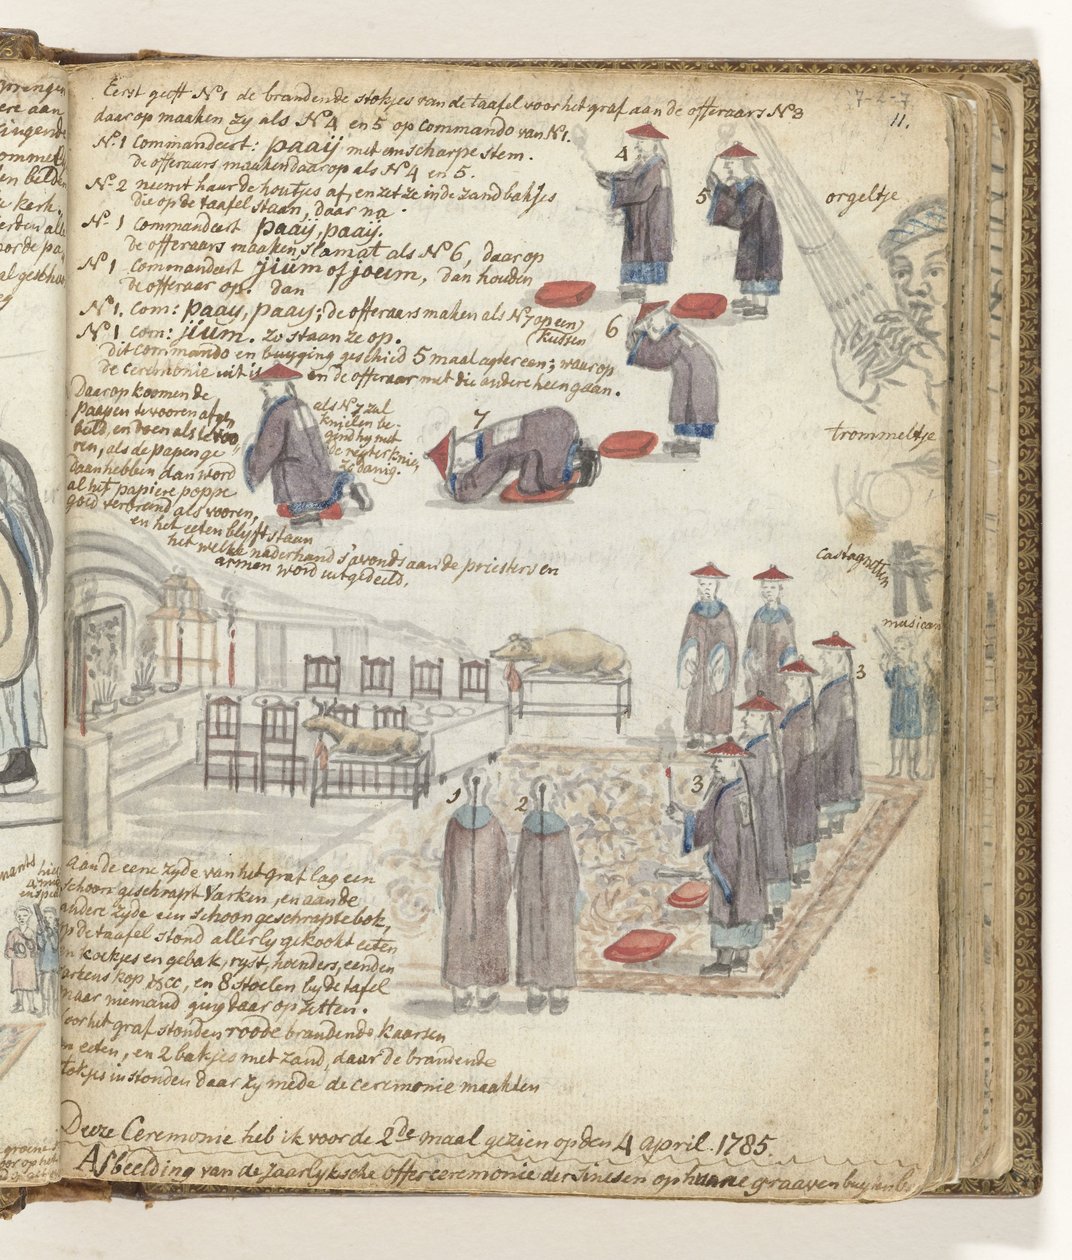 Eerst geeft No 1 de brandende stokjes van de taafel voor het graf aan de offeraars No 3
7-2-7
11.
daarop maaken zy als No 4 en 5 op Commando van No 1.
No. 1 Commandeert: paaij met een scharpe stem.
de offeraars maaken daarop als No 4 en 5.
No 2 neemt haar de houtjes af, en zet ze in de zandbakjes
die op de taafel staan, daar na
No 1 Commandeert paaij, paaij.
de offeraars maaken slamat als No 6, daar op
No 1 Commandeert jium of joeum, dan houden
de offeraer op. dan
No 1. Com: paaij, paaij; de offeraars maken als No 7 op een
kussen
No 1. com: jium. zo staan ze op.
dit commando en buyging geschied 5 maal agter een; waar op
de Ceremonie uit is en de offeraar met die andere heen gaan.
4
5
6
7
orgeltje
trommeltje
castagnetten
musicant
Daar op koomen de
paapen te vooren af ge
beeld, en doen als te voo
ren, als de papen ge
daan hebben dan word
al het papiere poppe
goed verbrand als vooren,
en het eeten blyft staan
het welke naderhand s'avonds aan de priesters en
armen word uitgedeild.
als No 7 zal
knielen be-
gind hy met
de regter knie,
zo danig.
3
3
1
2
Aan de eene zyde van het graf lag een
schoon geschrapt Varken, en aan de
andere zyde een schoon geschrapte bok,
op de taafel stond allerly gekookt eeten
en koekjes en gebak, ryst, hoenders, eenden
varkens kop &cc, en 8 stoelen by de tafel
maar niemand ging daar op zitten.
Voor het graf stonden roode brandende kaarsen
en eeten, en 2 bakjes met zand, daar de brandende
stokjes in stonden daar zy mede de ceremonie maakten
Deeze Ceremonie heb ik voor de 2de maal gezien op den 4 April. 1785.
Afbeelding van de Jaarlyksche offer ceremonie der Sineesen op hunne graaven buyten